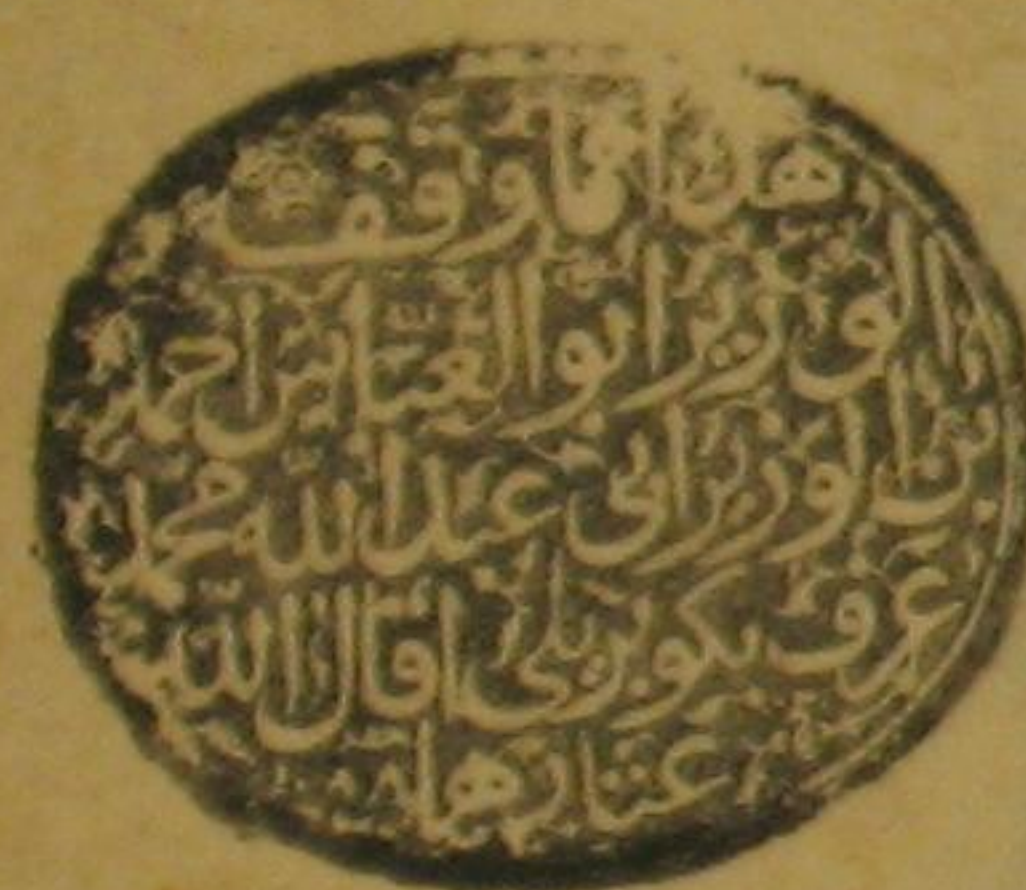 هذا ما وقف
الوزير ابو العباس احمد
بن الوزير ابى عبد الله محمد
عرف بكوبريلى اقال الله
عثارهما ١٠٨٨